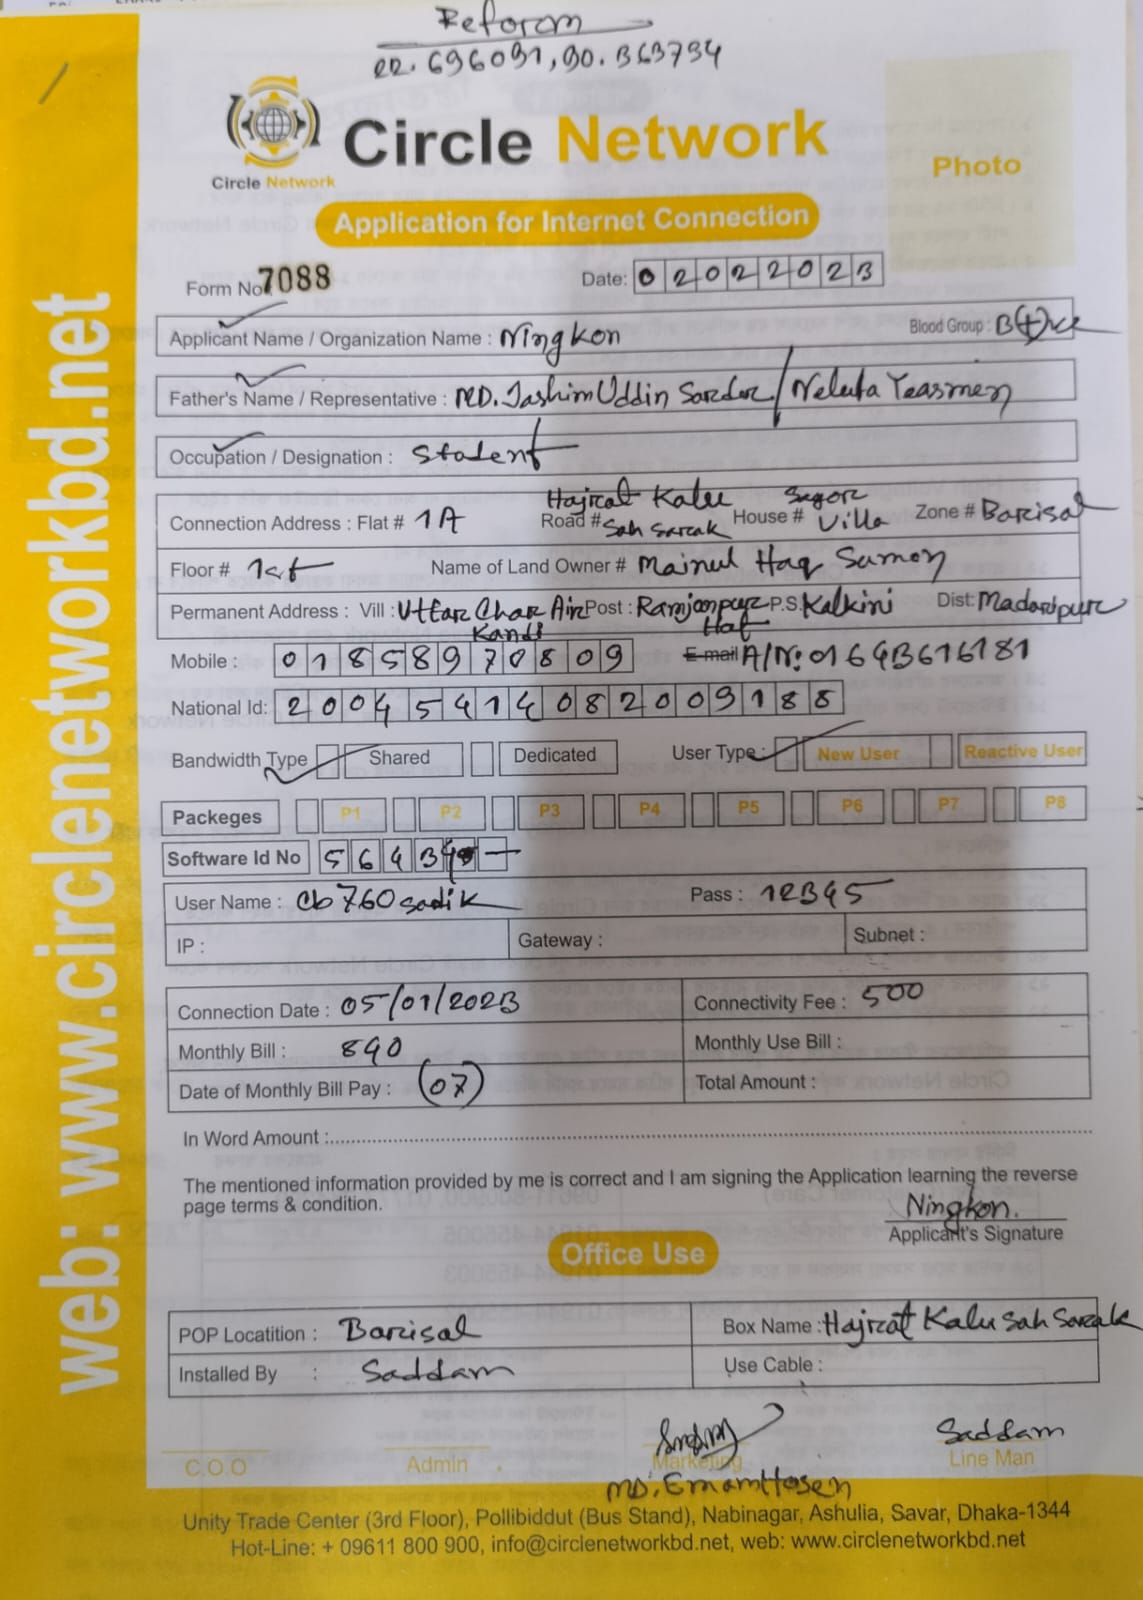 Reform
22.696091,90.363734
Circle Network
Circle Network
Photo
Application for Internet Connection
Form No. 7088
Date: 02022023
Applicant Name / Organization Name : Ningkon
Blood Group : B(+)ve
Father's Name / Representative : MD. Jashim Uddin Sardar / Neluta Yeasmen
Occupation / Designation : Student
Connection Address : Flat # 1A Road # Hajrat Kalu Sah Sarak House # Sagor Villa Zone # Barisal
Floor # 1st Name of Land Owner # Mainul Haq Sumon
Permanent Address : Vill : Uttar Char Air Kandi Post : Ramjanpur Hat P.S. Kalkini Dist: Madaripur
Mobile : 01858970809 E-mail A/N: 01643616181
National Id: 20045414082009188
Bandwidth Type Shared Dedicated User Type : New User Reactive User
Packeges P1 P2 P3 P4 P5 P6 P7 P8
Software Id No 5643
User Name : cb760sadik Pass : 12345
IP : Gateway : Subnet :
Connection Date : 05/01/2023 Connectivity Fee : 500
Monthly Bill : 840 Monthly Use Bill :
Date of Monthly Bill Pay : (07) Total Amount :
In Word Amount :
The mentioned information provided by me is correct and I am signing the Application learning the reverse
page terms & condition.
Ningkon.
Applicant's Signature
Office Use
POP Locatition : Barisal Box Name : Hajrat Kalu Sah Sarak
Installed By : Saddam Use Cable :
Saddam
C.O.O Admin Marketing Line Man
MD. Emam Hosen
Unity Trade Center (3rd Floor), Pollibiddut (Bus Stand), Nabinagar, Ashulia, Savar, Dhaka-1344
Hot-Line: + 09611 800 900, info@circlenetworkbd.net, web: www.circlenetworkbd.net
web: www.circlenetworkbd.net